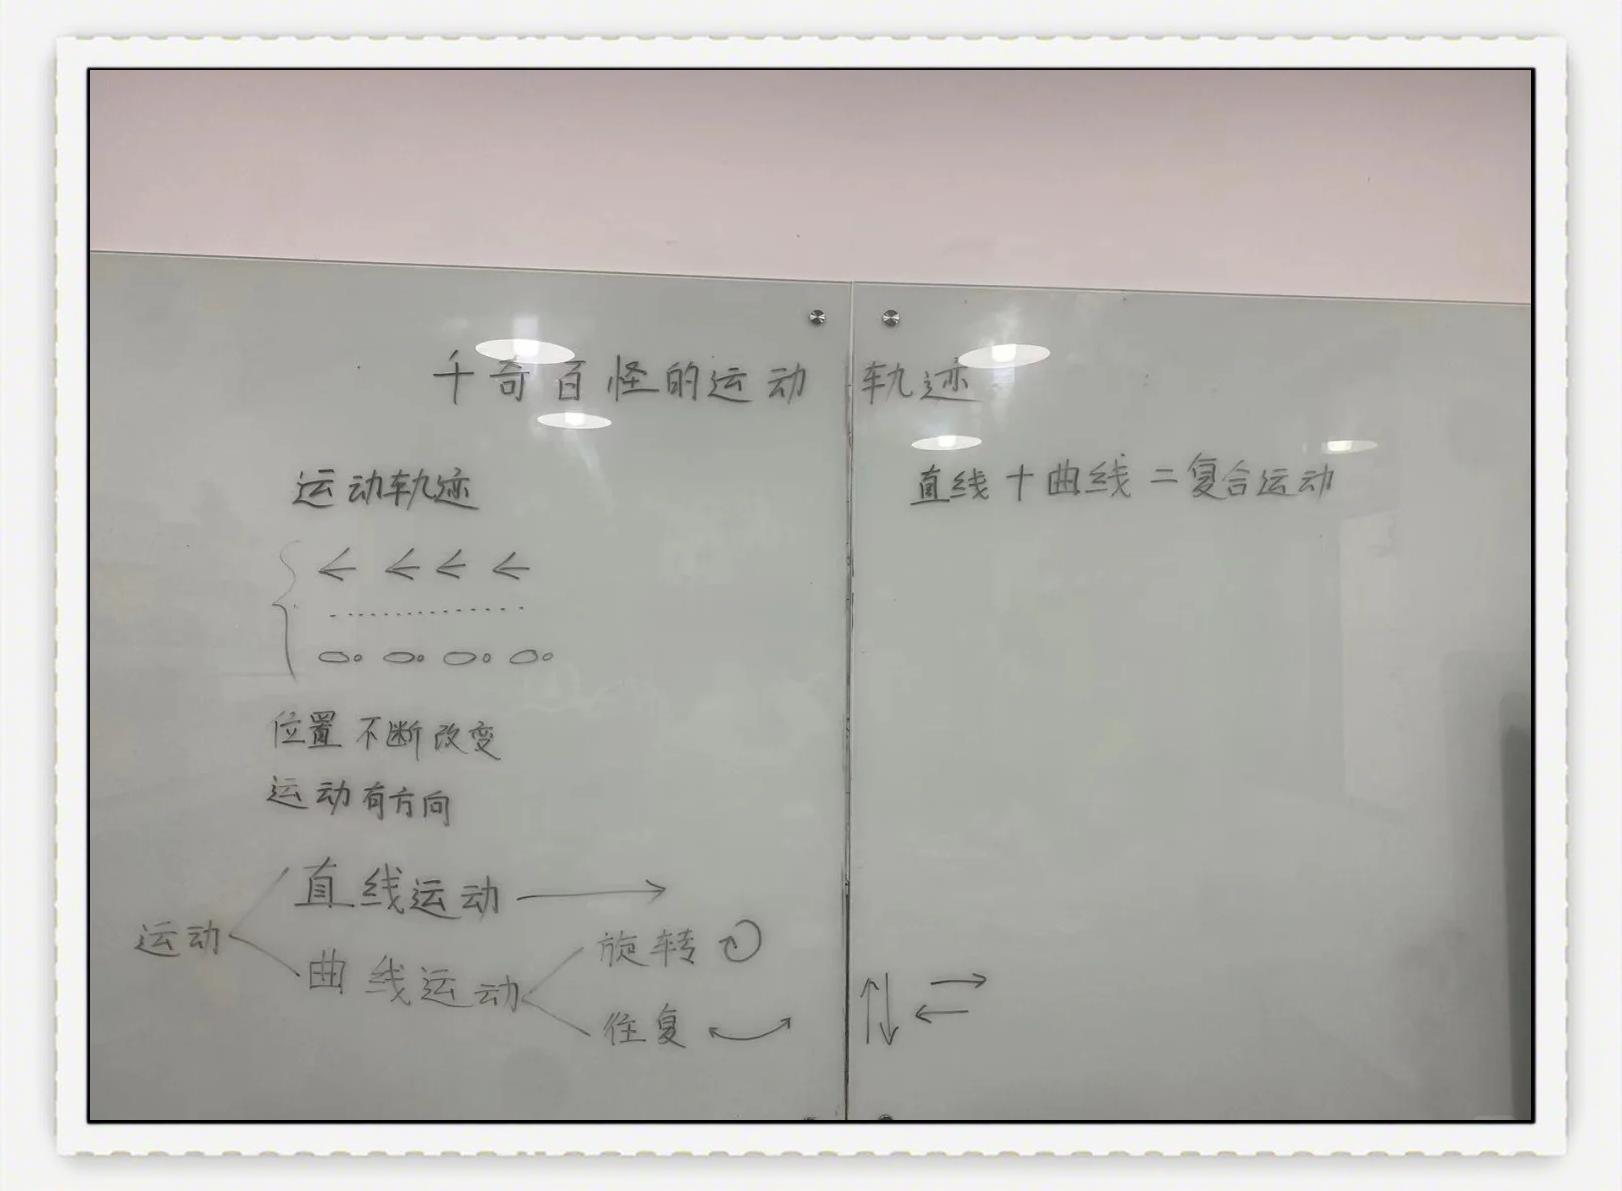 千奇百怪的运动轨迹
运动轨迹
直线+曲线=复合运动
位置不断改变
运动有方向
运动
直线运动
曲线运动
旋转
往复